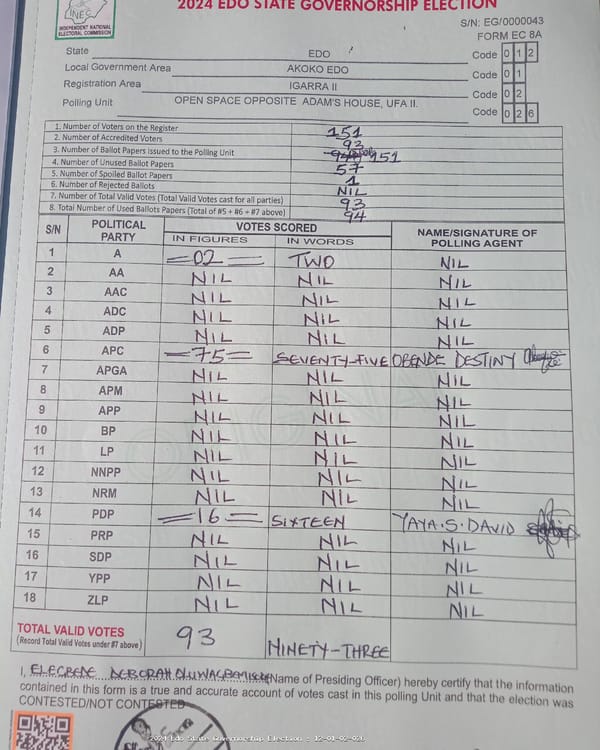 2024 EDO STATE GOVERNORSHIP ELECTION
INEC
INDEPENDENT NATIONAL
ELECTORAL COMMISSION
S/N: EG/0000043
FORM EC 8A
State EDO Code 0 1 2
Local Government Area AKOKO EDO Code 0 1
Registration Area IGARRA II Code 0 2
Polling Unit OPEN SPACE OPPOSITE ADAM'S HOUSE, UFA II. Code 0 2 6
1. Number of Voters on the Register 151
2. Number of Accredited Voters 93
3. Number of Ballot Papers Issued to the Polling Unit 151
4. Number of Unused Ballot Papers 57
5. Number of Spoiled Ballot Papers 1
6. Number of Rejected Ballots NIL
7. Number of Total Valid Votes (Total Valid Votes cast for all parties) 93
8. Total Number of Used Ballots Papers (Total of #5 + #6 + #7 above) 94
S/N POLITICAL PARTY VOTES SCORED NAME/SIGNATURE OF POLLING AGENT
IN FIGURES IN WORDS
1 A =02= TWO NIL
2 AA NIL NIL NIL
3 AAC NIL NIL NIL
4 ADC NIL NIL NIL
5 ADP NIL NIL NIL
6 APC =75= SEVENTY-FIVE OBENDE DESTINY
7 APGA NIL NIL NIL
8 APM NIL NIL NIL
9 APP NIL NIL NIL
10 BP NIL NIL NIL
11 LP NIL NIL NIL
12 NNPP NIL NIL NIL
13 NRM NIL NIL NIL
14 PDP =16= SIXTEEN YAYA.S.DAVID
15 PRP NIL NIL NIL
16 SDP NIL NIL NIL
17 YPP NIL NIL NIL
18 ZLP NIL NIL NIL
TOTAL VALID VOTES 93 NINETY-THREE
(Record Total Valid Votes under #7 above)
I, ELEGBEDE DEBORAH (Name of Presiding Officer) hereby certify that the information
contained in this form is a true and accurate account of votes cast in this polling Unit and that the election was
CONTESTED/NOT CONTESTED
2024 Edo State Governorship Election - 12-01-02-026